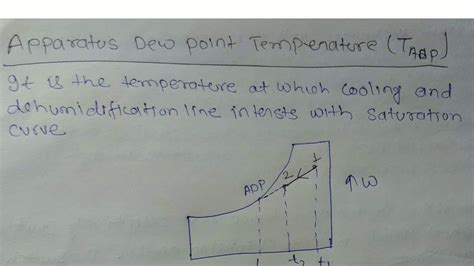 Apparatus Dew point Temperature (T_ADP)
It is the temperature at which cooling and
dehumidification line intersts with saturation
curve
ADP 2 1 ↑W
t2 t1